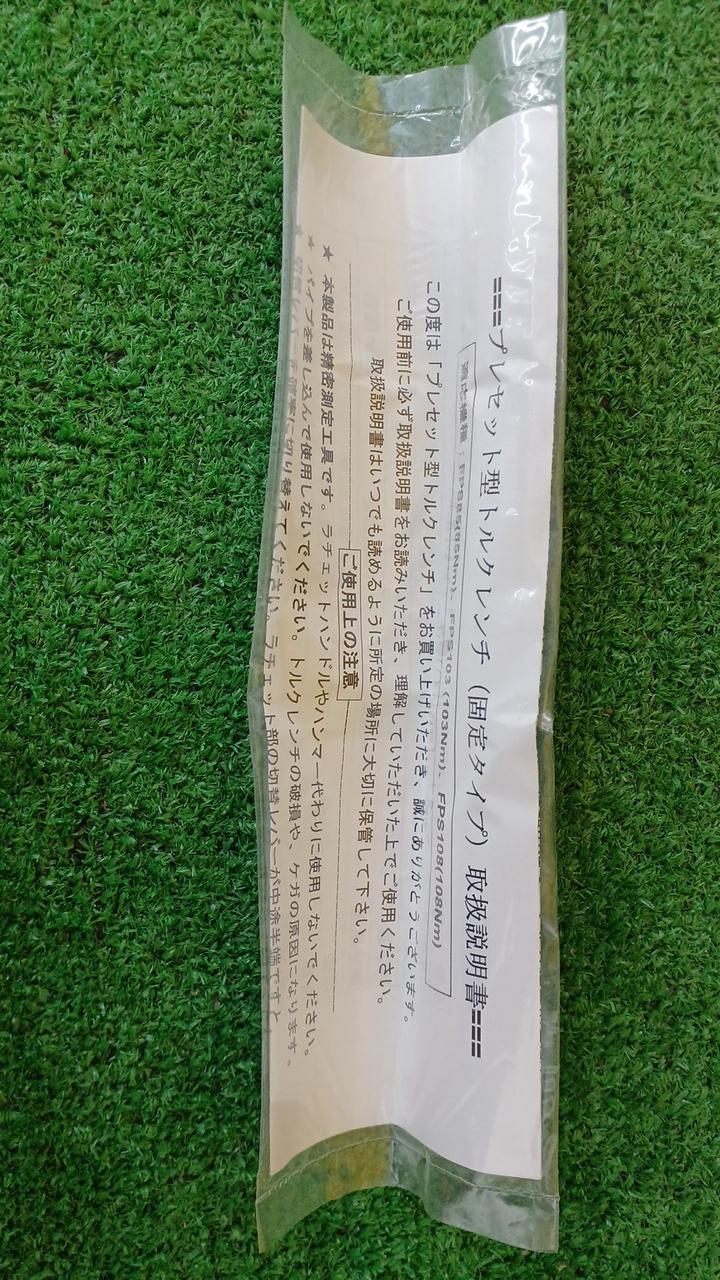 ===プレセット型トルクレンチ（固定タイプ）取扱説明書===
適応機種：FPS85(85Nm)、FPS103(103Nm)、FPS108(108Nm)
この度は「プレセット型トルクレンチ」をお買い上げいただき、誠にありがとうございます。
ご使用前に必ず取扱説明書をお読みいただき、理解していただいた上でご使用ください。
取扱説明書はいつでも読めるように所定の場所に大切に保管して下さい。
ご使用上の注意
★ 本製品は精密測定工具です。ラチェットハンドルやハンマー代わりに使用しないでください。
★ パイプを差し込んで使用しないでください。トルクレンチの破損や、ケガの原因になります。
★ 切替レバーは確実に切り替えてください。ラチェット部の切替レバーが中途半端ですと